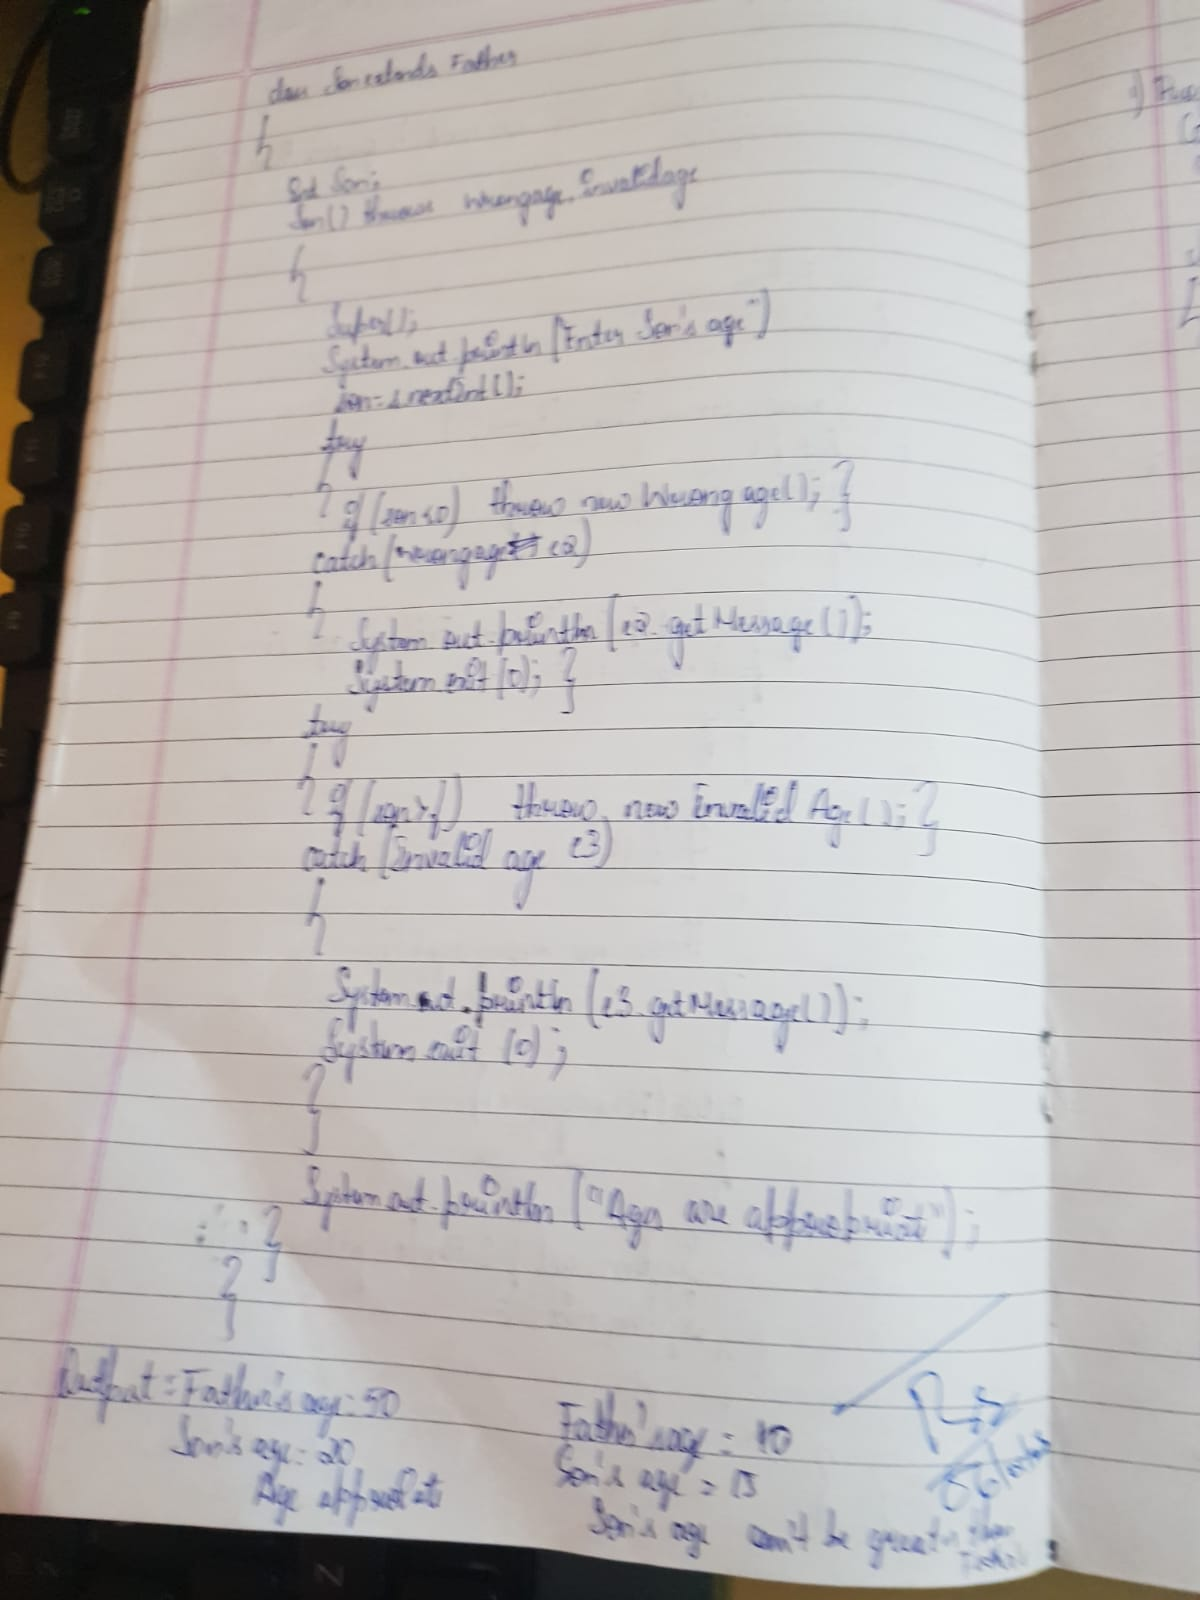 class Son extends Father
{
int Son;
Son() throws wrongage, Invalidage
{
Super();
System.out.println("Enter Son's age")
son=s.nextInt();
try
{ if (son<0) throw new Wrong age(); }
catch(wrongage e2)
{
System.out.println(e2.getMessage());
System.exit(0); }
try
{ if (son>f) throw new Invalid Age(); }
catch(Invalid age e3)
{
System.out.println(e3.getMessage());
System.exit(0);
}
System.out.println("Ages are appropriat");
}
}
Output = Father's age: 50
Son's age: 20
Age
Father's age = 10
Son's age = 15
Son's age can't be greater than